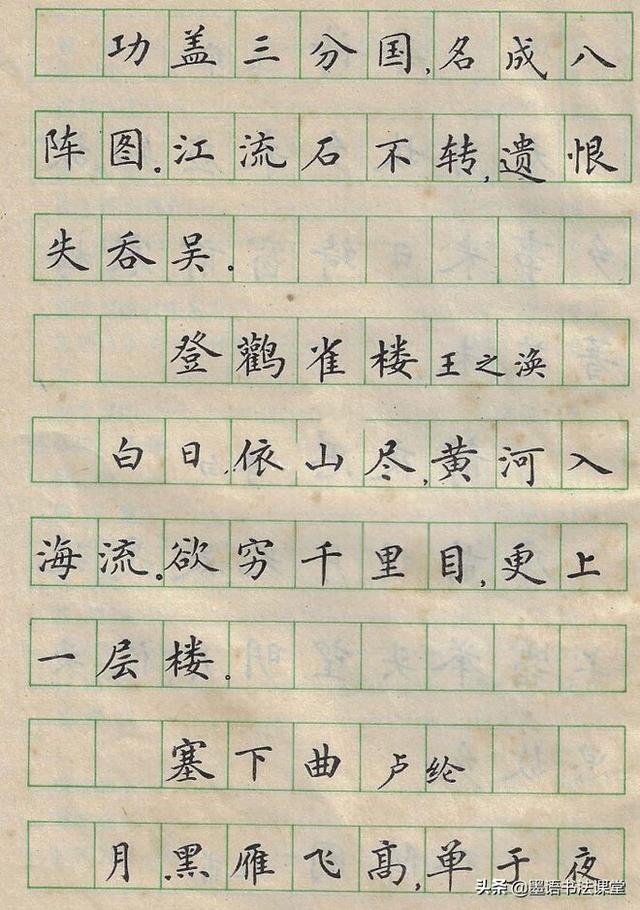 功盖三分国,名成八
阵图.江流石不转,遗恨
失吞吴.
登鹳雀楼 王之涣
白日依山尽,黄河入
海流.欲穷千里目,更上
一层楼.
塞下曲 卢纶
月黑雁飞高,单于夜
头条@墨语书法课堂